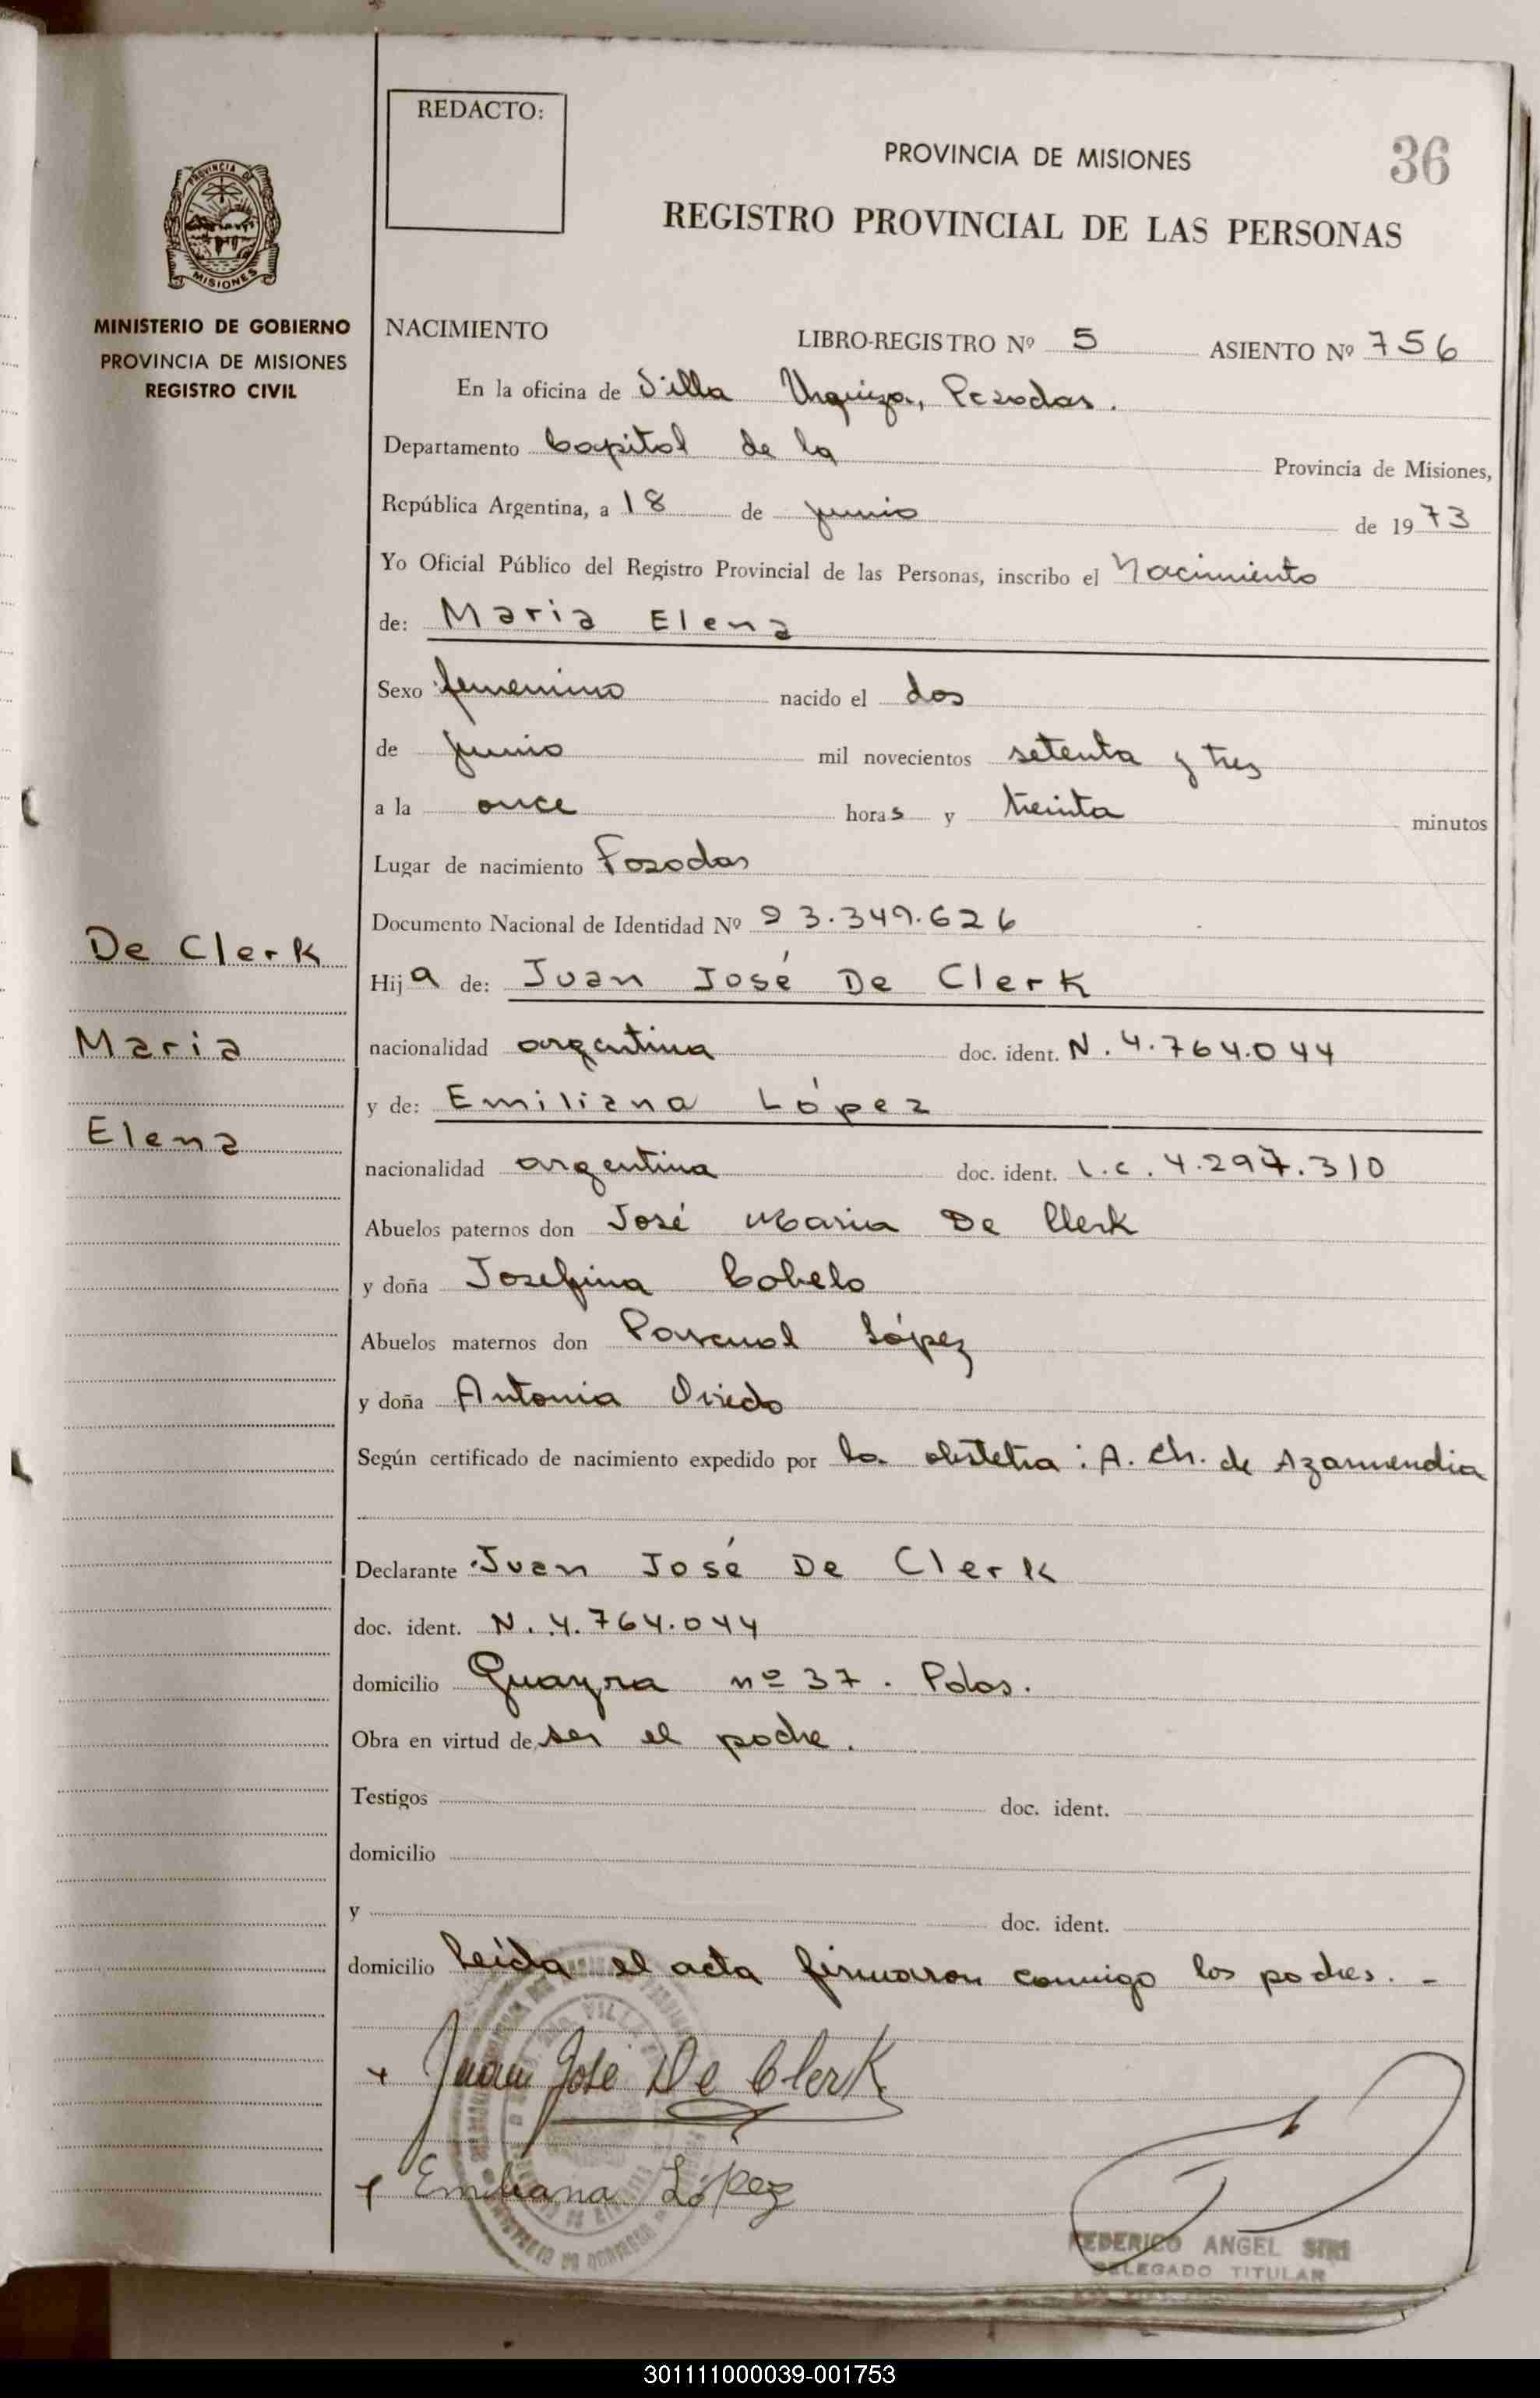 REDACTO:
PROVINCIA DE MISIONES
36
REGISTRO PROVINCIAL DE LAS PERSONAS
PROVINCIA DE
MISIONES
MINISTERIO DE GOBIERNO
PROVINCIA DE MISIONES
REGISTRO CIVIL
NACIMIENTO LIBRO-REGISTRO Nº 5 ASIENTO Nº 756
En la oficina de Villa Urquiza, Posadas.
Departamento Capital de la Provincia de Misiones,
República Argentina, a 18 de junio de 1973
Yo Oficial Público del Registro Provincial de las Personas, inscribo el Nacimiento
de: Maria Elena
Sexo femenino nacido el dos
de junio mil novecientos setenta y tres
a la once horas y treinta minutos
Lugar de nacimiento Posadas
Documento Nacional de Identidad Nº 23.349.626
De Clerk
Hija de: Juan José De Clerk
Maria
nacionalidad argentina doc. ident. N. 4.764.044
y de: Emiliana López
Elena
nacionalidad argentina doc. ident. L.C. 4.297.310
Abuelos paternos don José Maria De Clerk
y doña Josefina Cobelo
Abuelos maternos don Pascual López
y doña Antonia Oviedo
Según certificado de nacimiento expedido por la obstetra: A. Ch. de Azarmendia
Declarante Juan José De Clerk
doc. ident. N. 4.764.044
domicilio Guayra nº 37. Pdas.
Obra en virtud de ser el padre.
Testigos doc. ident.
domicilio
y doc. ident.
domicilio Leída el acta firmaron conmigo los padres. -
+ Juan José De Clerk
+ Emiliana López
FEDERICO ANGEL SIRI
DELEGADO TITULAR
301111000039-001753